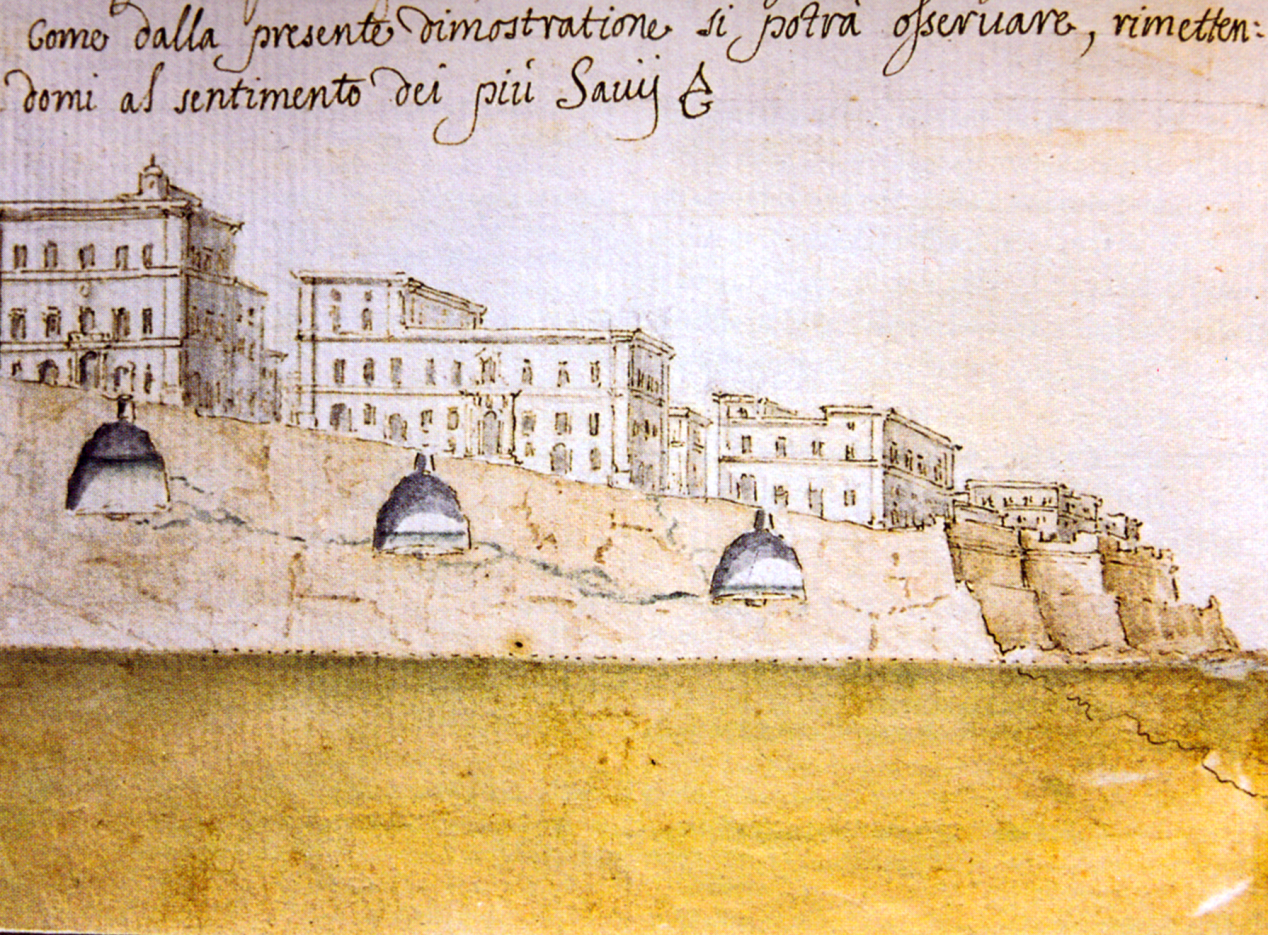 Come dalla presente dimostratione si potrà osseruare, rimetten:
domi al sentimento dei più Sauij